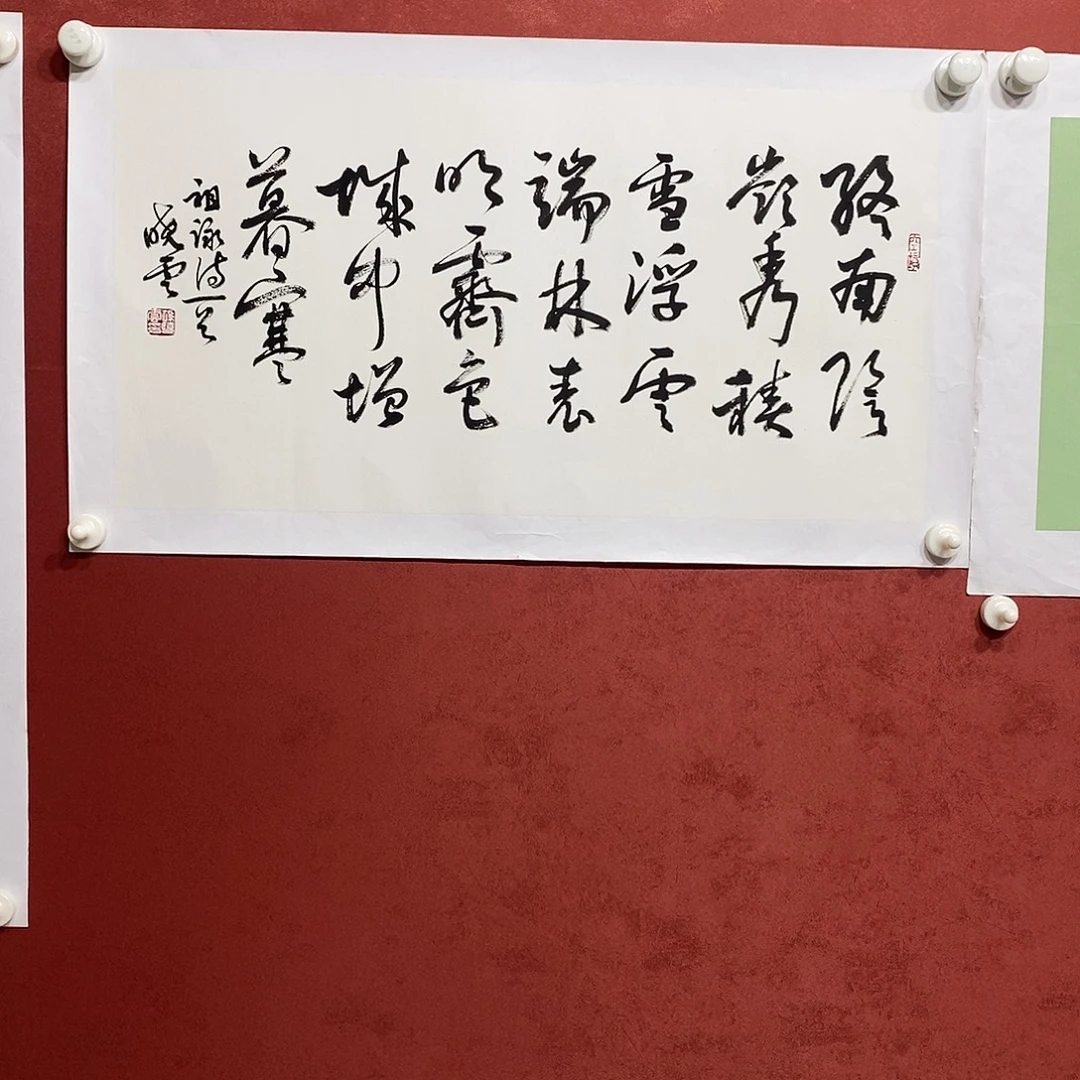 終南陰
嶺秀積
雪浮雲
端林表
明霽色
城中增
暮寒
祖詠詩一首
曉雲